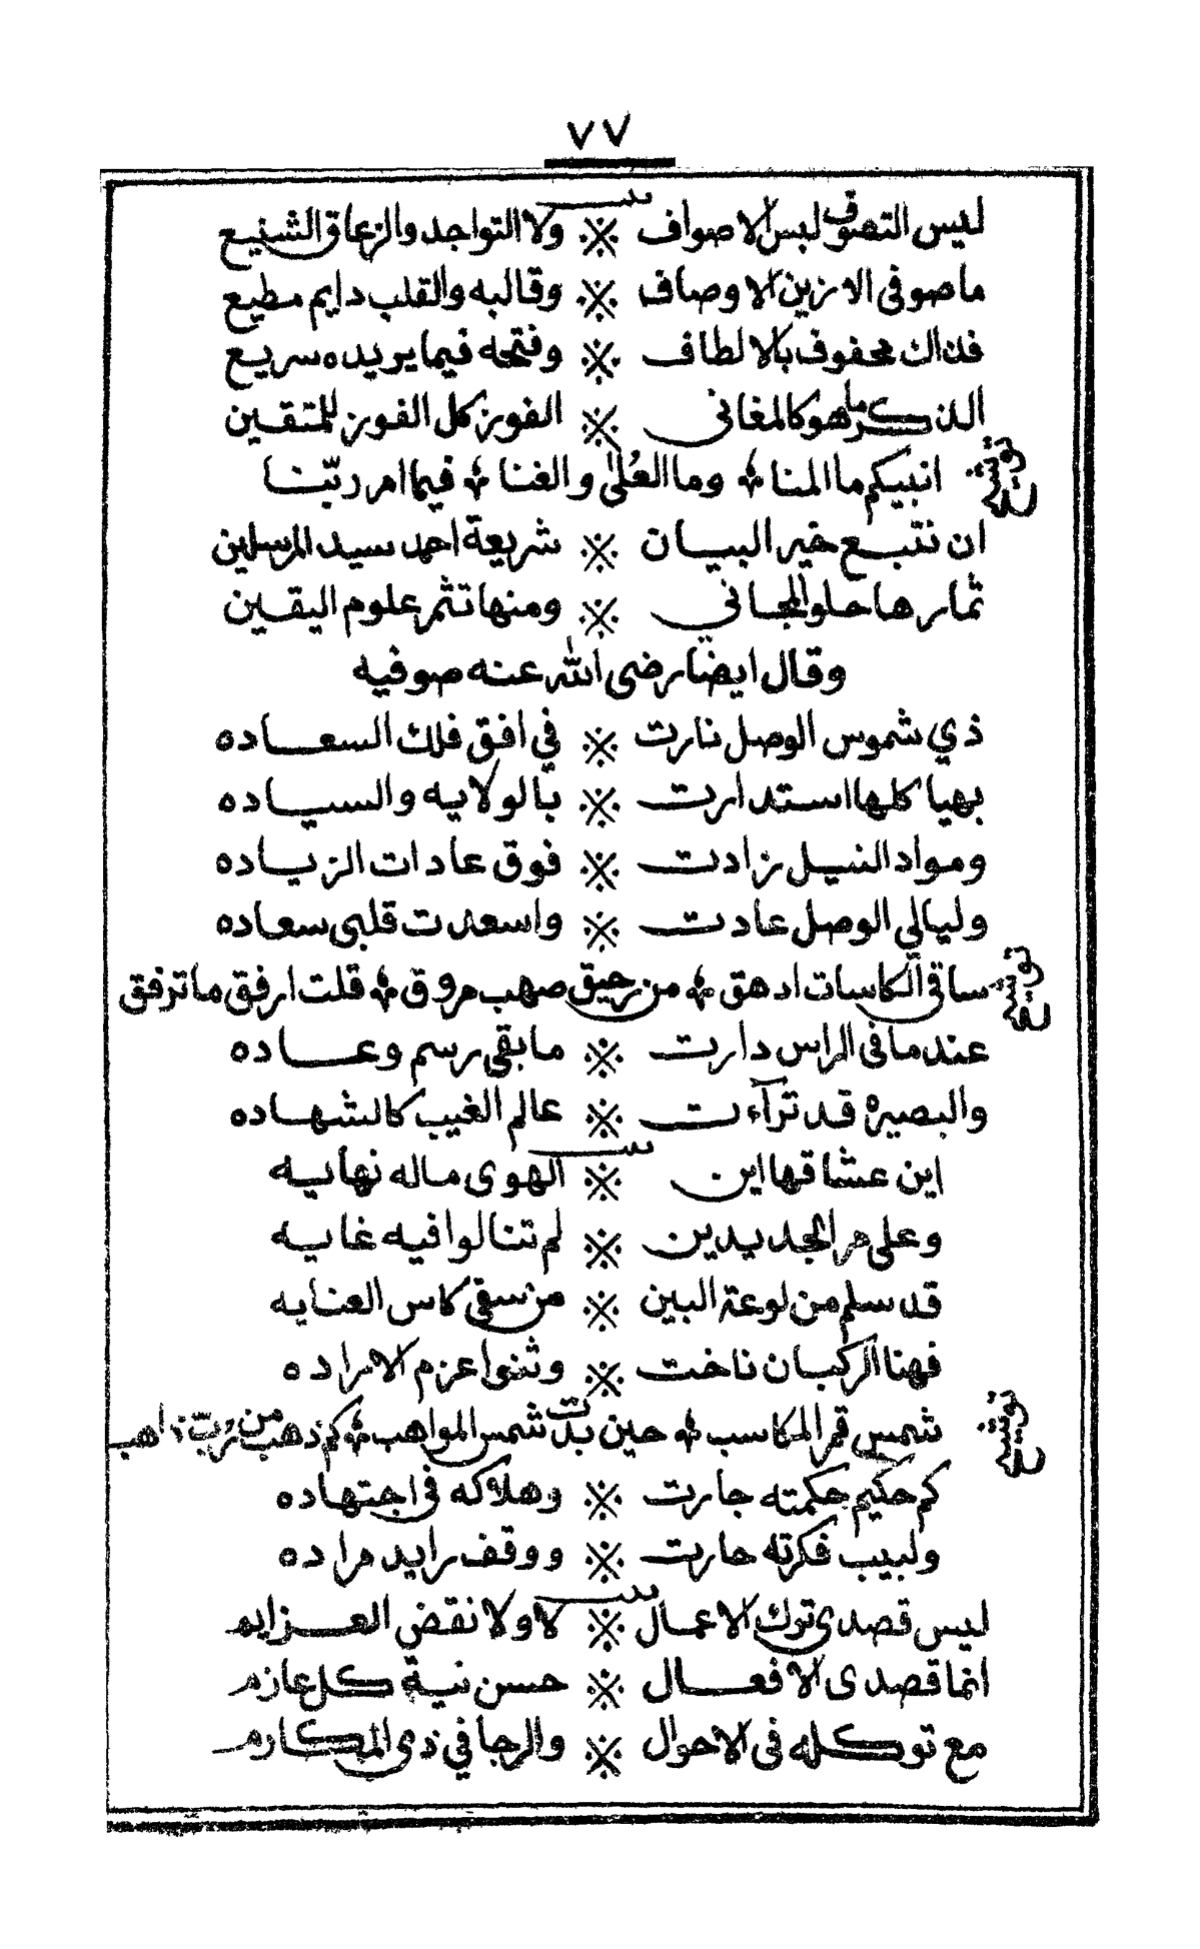 ٧٧
ليس التصوف لبس الاصواف ※ ولا التواجد والزعاق الشنيع
ما صوفى الا زين الاوصاف ※ وقالبه والقلب دايم مطيع
فذاك محفوف بالالطاف ※ وفتحه فيما يريده سريع
الذكر ما هو كالمغانى ※ الفوز كل الفوز للمتقين
توشيح
انبيكم ما المنا ⁂ وما العُلىٰ والغنا ⁂ فيما امر ربّنا
ان نتبع خير البيان ※ شريعة احمد سيد المرسلين
ثمارها حلو المجانى ※ ومنها تثمر علوم اليقين
وقال ايضا رضى الله عنه صوفيه
ذي شموس الوصل نارت ※ في افق فلك السعاده
بهيا كلها استدارت ※ بالولايه والسياده
ومواد النيل زادت ※ فوق عادات الزياده
وليالي الوصل عادت ※ واسعدت قلبى سعاده
توشيح
ساقى الكاسات ادهق ⁂ من رحيق صهب مروق ⁂ قلت ارفق ما ترفق
عند ما فى الراس دارت ※ ما بقى رسم وعاده
والبصيره قد ترآءت ※ عالم الغيب كالشهاده
اين عشاقها اين ※ الهوى ماله نهايه
وعلى مر الجديدين ※ لم تنالوا فيه غايه
قد سلم من لوعة البين ※ من سقى كاس العنايه
فهنا الركبان ناخت ※ وثنوا عزم الاراده
توشيح
شمس قمر المكاسب ⁂ حين بدت شمس المواهب ⁂ كم ذهب من رُبّ ذاهب
كم حكيم حكمته جارت ※ وهلاكه فى اجتهاده
ولبيب فكرته حارت ※ ووقف رايد مراده
ليس قصدى توك الاعمال ※ لا ولا نقض العزايم
انما قصدى الافعال ※ حسن نية كل عازم
مع توكله فى الاحوال ※ والرجا في ذى المكارم